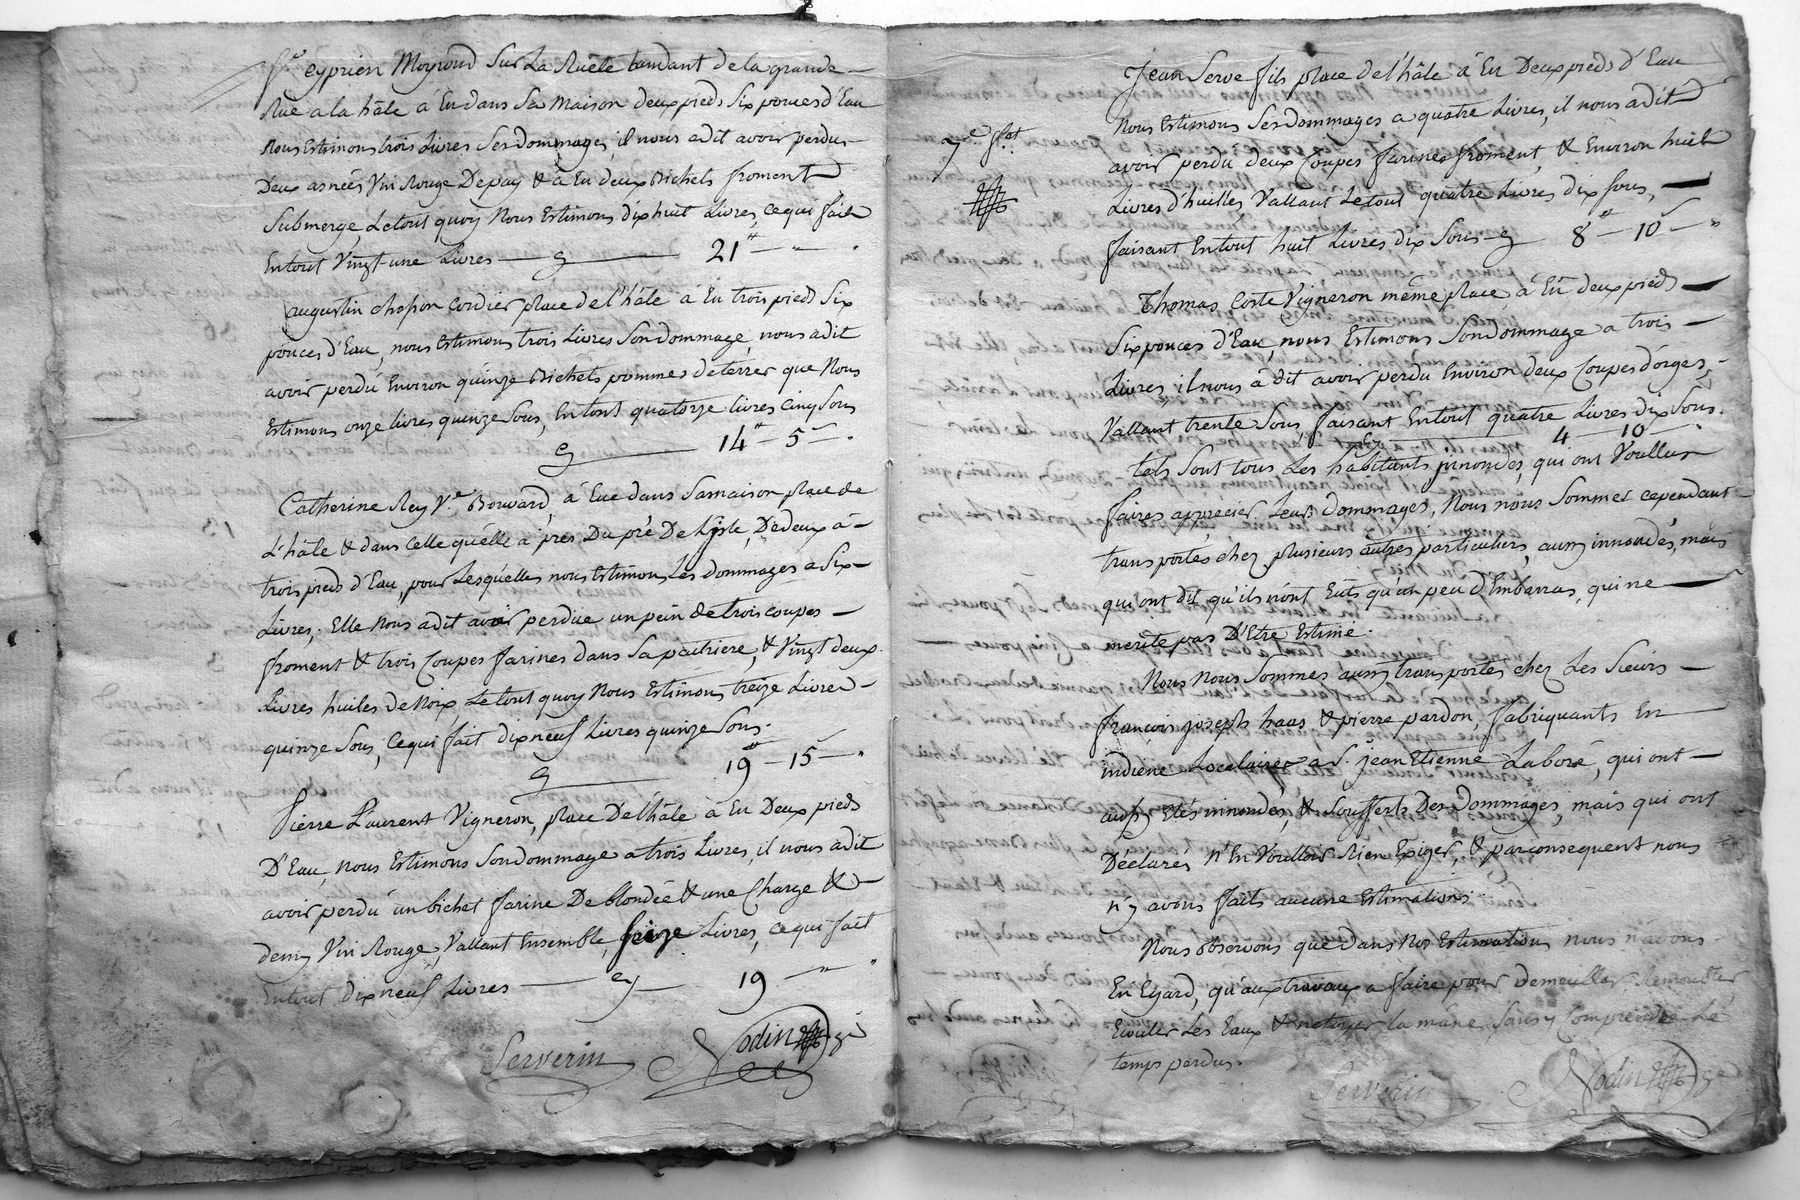 Sr. Cyprien Moyroud Sur La Ruële tandant de la grande
Rue a la hâle à Eu dans Sa Maison deux pieds Six pouces d'Eau
Nous Estimons trois Livres Ses dommages, il nous a dit avoir perdu
Deux asnées Vin Rouge De pay & à Eu deux Bichets froment
Submergé, Le tout quoy Nous Estimons dix huit Livres, ce qui fait
En tout Vingt-une Livres 21
augustin chapon Cordier place de l'hâle à Eu trois pieds Six
pouces d'Eau, nous Estimons trois Livres Son dommage, nous a dit
avoir perdu Environ quinze Bichets pommes de terre que Nous
Estimons onze livres quinze Sous, En tout quatorze livres Cinq Sous
14 5
Catherine Rey Ve. Borward, à Eue dans Sa maison place de
L'hâle & dans Celle qu'elle a près Du pré De L'isle, De deux à
trois pieds d'Eau, pour Lesquelles nous Estimons Les dommages a Six
Livres. Elle Nous a dit avoir perdue un pain de trois coupes
froment & trois Coupes farines dans Sa paitriere, & Vingt deux
Livres huiles de Noix, Le tout quoy Nous Estimons treize Livres
quinze Sous, Ce qui fait dix neuf Livres quinze Sous.
19 15
Pierre Laurent Vigneron, place De l'hâle à Eu Deux pieds
D'Eau, Nous Estimons Son dommage a trois Livres, il nous a dit
avoir perdu un bichet farine De blondée & une Charge &
demy Vin Rouge, Vallant Ensemble, Seize Livres, ce qui fait
En tout dix neuf Livres 19
Serverin Nodin
Jean Serve fils place de l'hâle à Eu Deux pieds d'Eau
Nous Estimons Ses dommages a quatre Livres, il nous a dit
7e. fot.
avoir perdu deux Coupes farines froment, & Environ huit
Livres d'huilles, Vallant Le tout quatre Livres dix sous,
faisant En tout huit Livres dix Sous 8 10
Thomas Coste Vigneron même place à Eu deux pieds
Six pouces d'Eau, nous Estimons Son dommage a trois
Livres, il nous à dit avoir perdu Environ deux Coupes d'orges
Vallant trente Sous, faisant En tout quatre Livres dix Sous.
4 10
tels Sont tous Les habitants innondés, qui ont Voullus
faires apprecier Leurs dommages, Nous nous Sommes cependant
transportés chez plusieurs autres particuliers, aussy innondés, mais
qui ont dit qu'ils n'ont Eûts qu'un peu d'Embarras, qui ne
merite pas D'Etre Estimé.
Nous nous Sommes aussy transportés chez Les Sieurs
françois joseph haas & pierre pardon, fabriquants En
indiene Locataires a S. jean Etienne Laboré, qui ont
aussy Etés innondés, & Soufferts Des Dommages, mais qui ont
Déclarés N'En Voulloir Rien Exiger, & par consequent nous
n'y avons faits aucune Estimations.
Nous observons que dans Nos Estimations nous n'avons
En Egard, qu'aux travaux a faire pour demeubler Remeubler
Ecouler Les Eaux & netoyer la mane, Sans y Comprendre Le
temps perdus.
Serverin Nodin